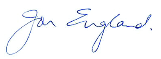 Jon England.